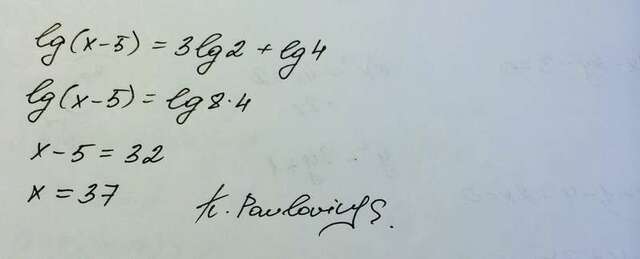 lg(x-5) = 3lg2 + lg4
lg(x-5) = lg8·4
x-5 = 32
x = 37